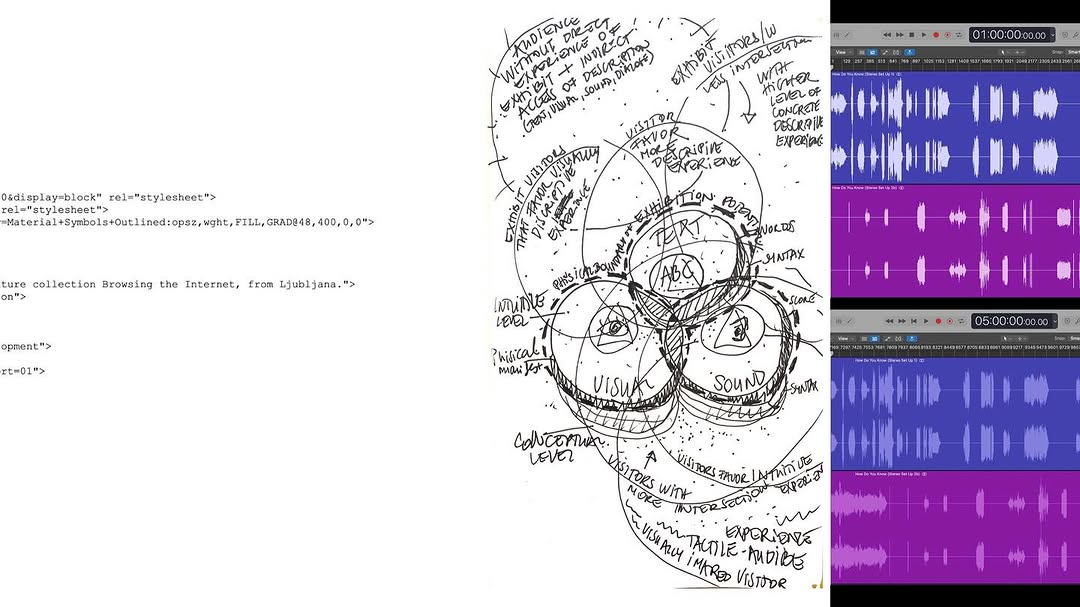 0&display=block" rel="stylesheet">
rel="stylesheet">
=Material+Symbols+Outlined:opsz,wght,FILL,GRAD@48,400,0,0">
ture collection Browsing the Internet, from Ljubljana.">
on">
opment">
rt=01">
AUDIENCE
WITHOUT DIRECT
EXPERIENCE OF
EXHIBIT + INDIRECT
ACCES OF DESCRIPTION
(GEN, VISUAL, SOUND, DIALOG)
EXHIBIT
VISITORS/W
LESS INTERSECTION
WITH
HIGHER
LEVEL OF
CONCRETE
DESCRIPTIVE
EXPERIENCE
VISITOR
FAVOR
MORE
DESCRIPIVE
EXPERIENCE
EXHIBIT VISITORS
THAT FAVOR VISUALLY
DISCRIPTIVE
EXPERIENCE
PHYSICAL BOUNDARY OF EXHIBITION
TEXT
ABC
WORDS
SYNTAX
SCORE
INTUITIVE
LEVEL
Phisical
manifest
VISUAL
SOUND
SYNTAX
CONCEPTUAL
LEVEL
VISITORS WITH
MORE INTERSECTION
VISITORS FAVOR INTUITIVE
EXPERIEN
EXPERIENCE
TACTILE-AUDIBLE
VISUALLY IMPARED VISITOR
01:00:00:00.00
View
129 257 385 513 641 769
How Do You Know (Stereo Set Up 1)
How Do You Know (Stereo Set Up 2)
05:00:00:00.00
View
How Do You Know (Stereo Set Up 1)
How Do You Know (Stereo Set Up 2)